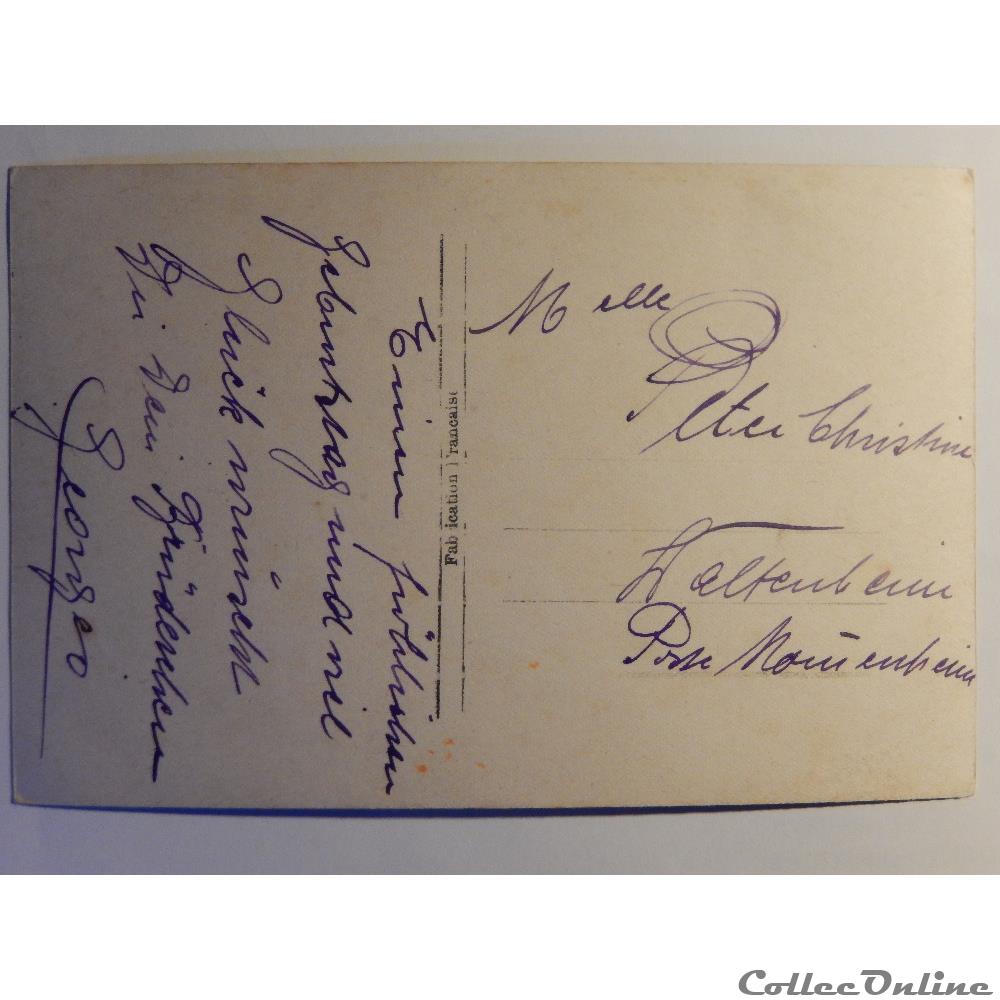 Einen fröhlichen
Geburtstag und viel
Glück wünscht
Dir Dein Brüderchen
Georges
Fabrication Francaise
Melle
Peter Christine
Waltenheim
Post Mommenheim
CollecOnline